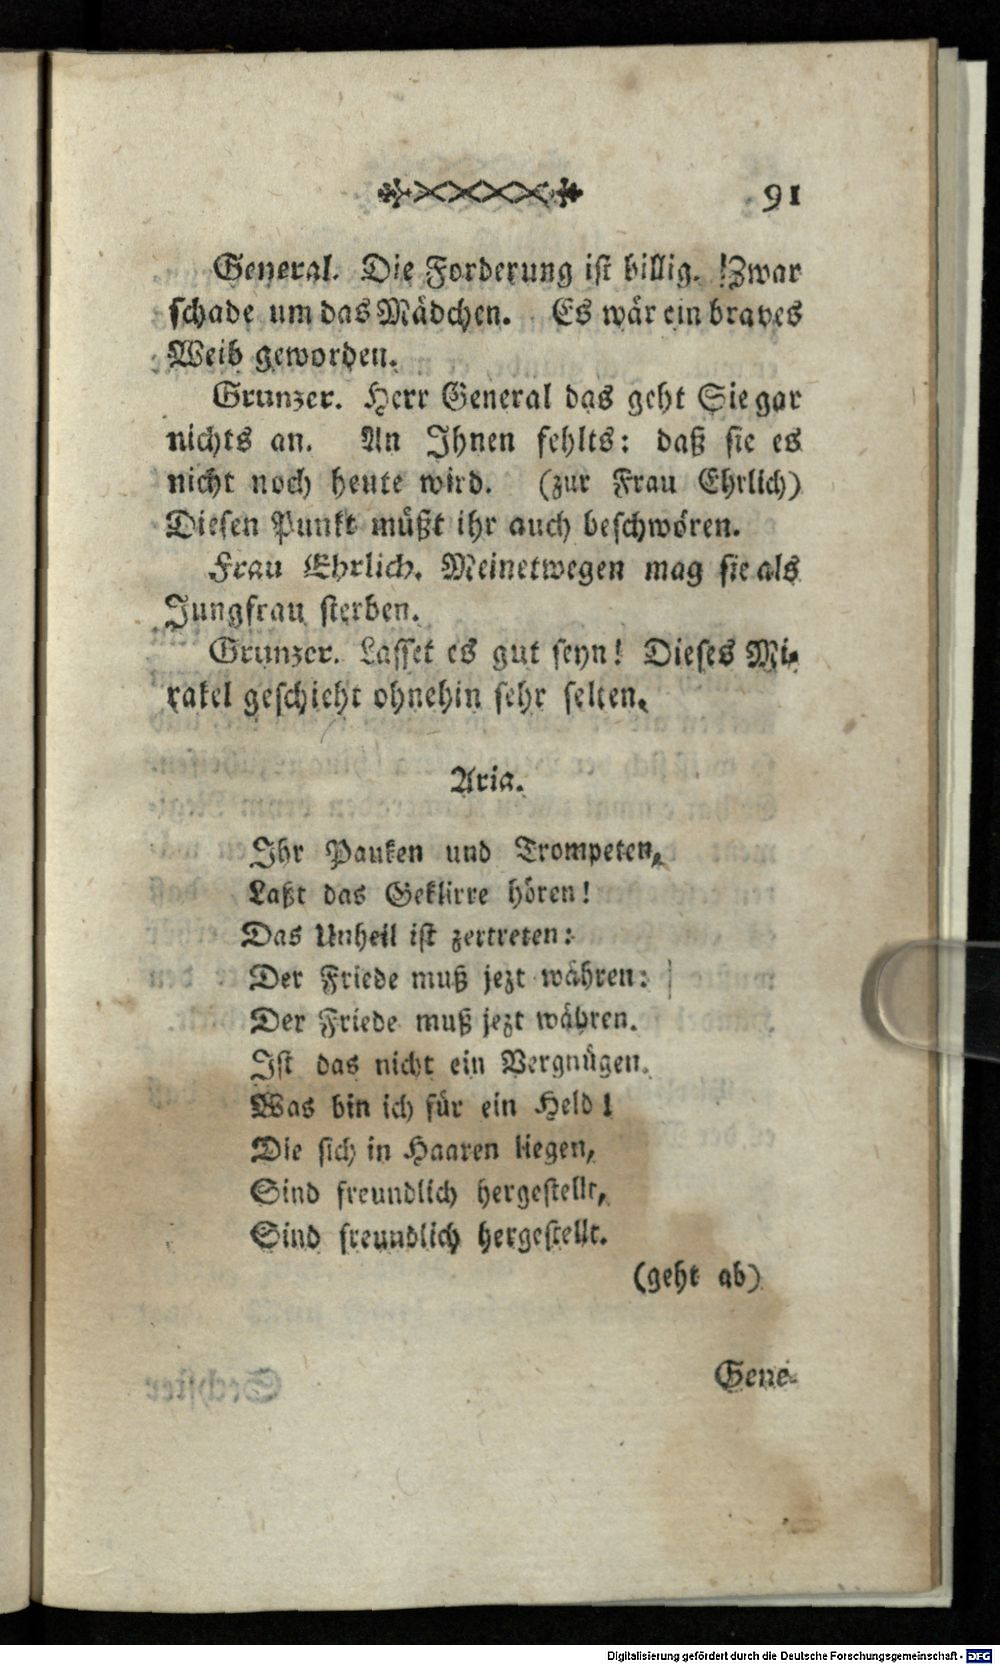 91
General. Die Forderung ist billig. !Zwar
schade um das Mädchen. Es wär ein braves
Weib geworden.
Grunzer. Herr General das geht Sie gar
nichts an. An Ihnen fehlts: daß sie es
nicht noch heute wird. (zur Frau Ehrlich)
Diesen Punkt müßt ihr auch beschwören.
Frau Ehrlich. Meinetwegen mag sie als
Jungfrau sterben.
Grunzer. Lasset es gut seyn! Dieses Mi-
rakel geschieht ohnehin sehr selten.
Aria.
Ihr Pauken und Trompeten,
Laßt das Geklirre hören!
Das Unheil ist zertreten:
Der Friede muß jezt währen:
Der Friede muß jezt währen.
Ist das nicht ein Vergnügen.
Was bin ich für ein Held!
Die sich in Haaren liegen,
Sind freundlich hergestellt,
Sind freundlich hergestellt.
(geht ab)
Gene-
Digitalisierung gefördert durch die Deutsche Forschungsgemeinschaft - DFG